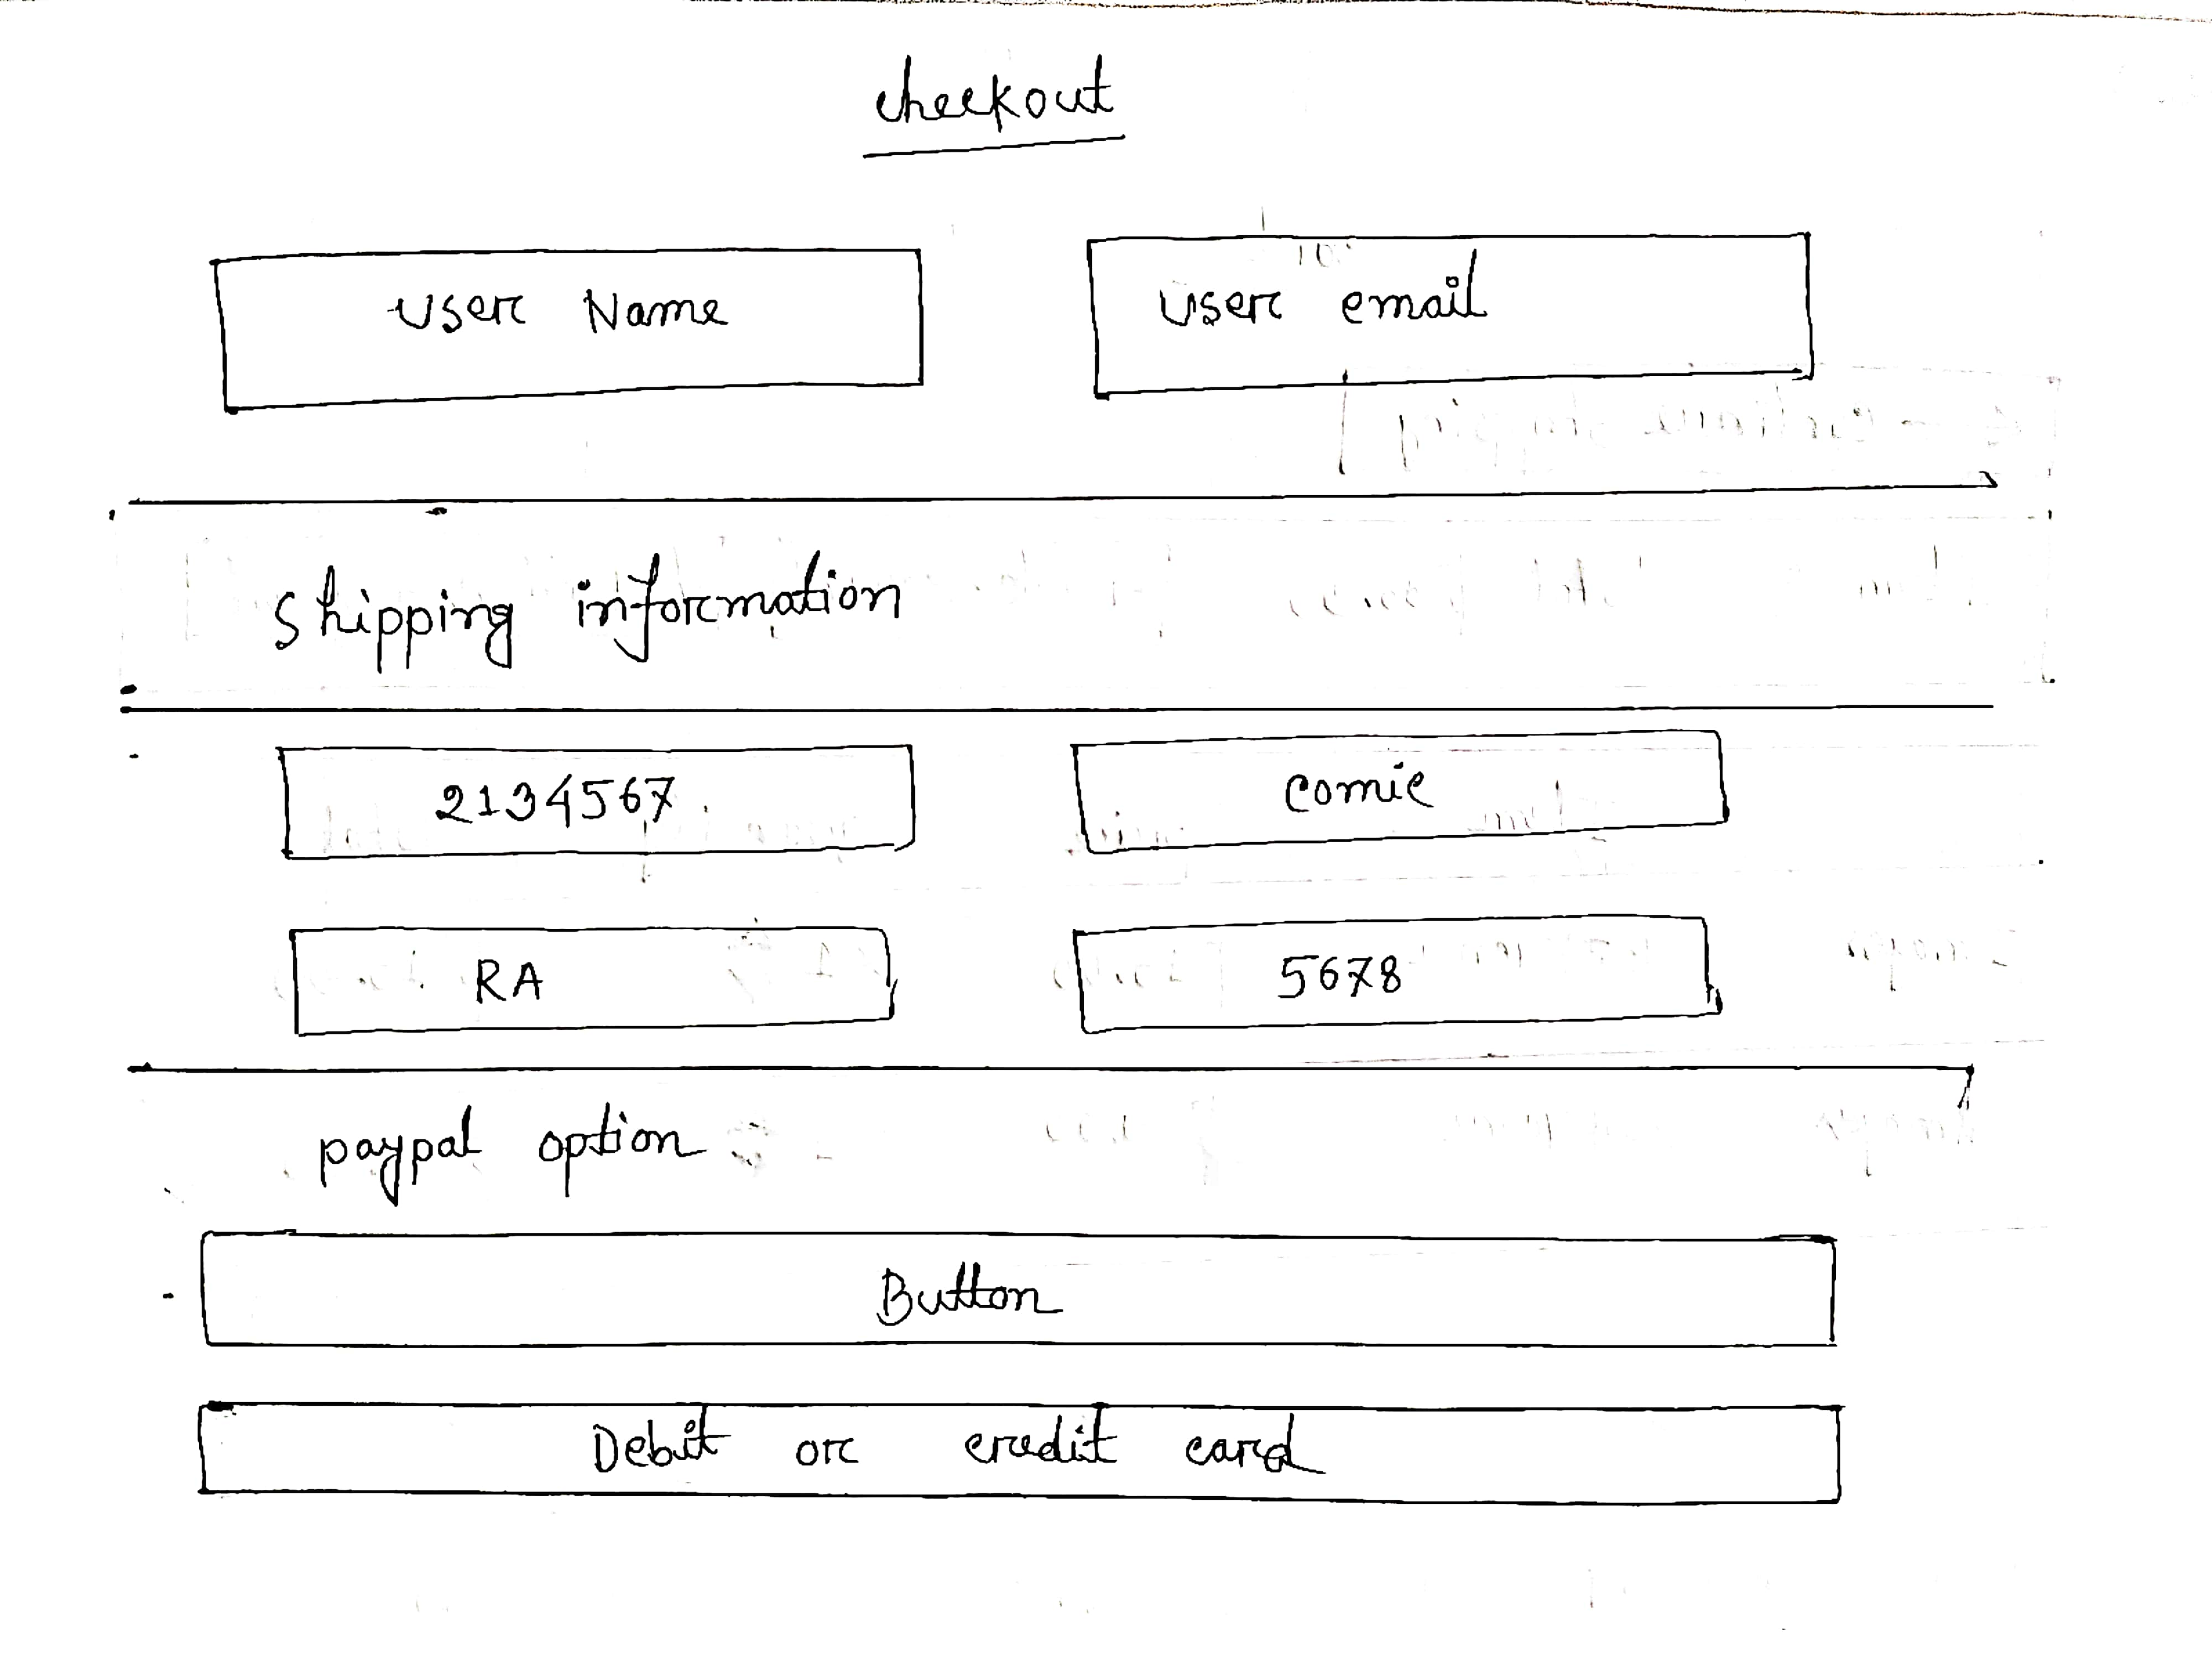 checkout
User Name
User email
Shipping information
2134567
comic
RA
5678
paypal option
Button
Debit or credit card